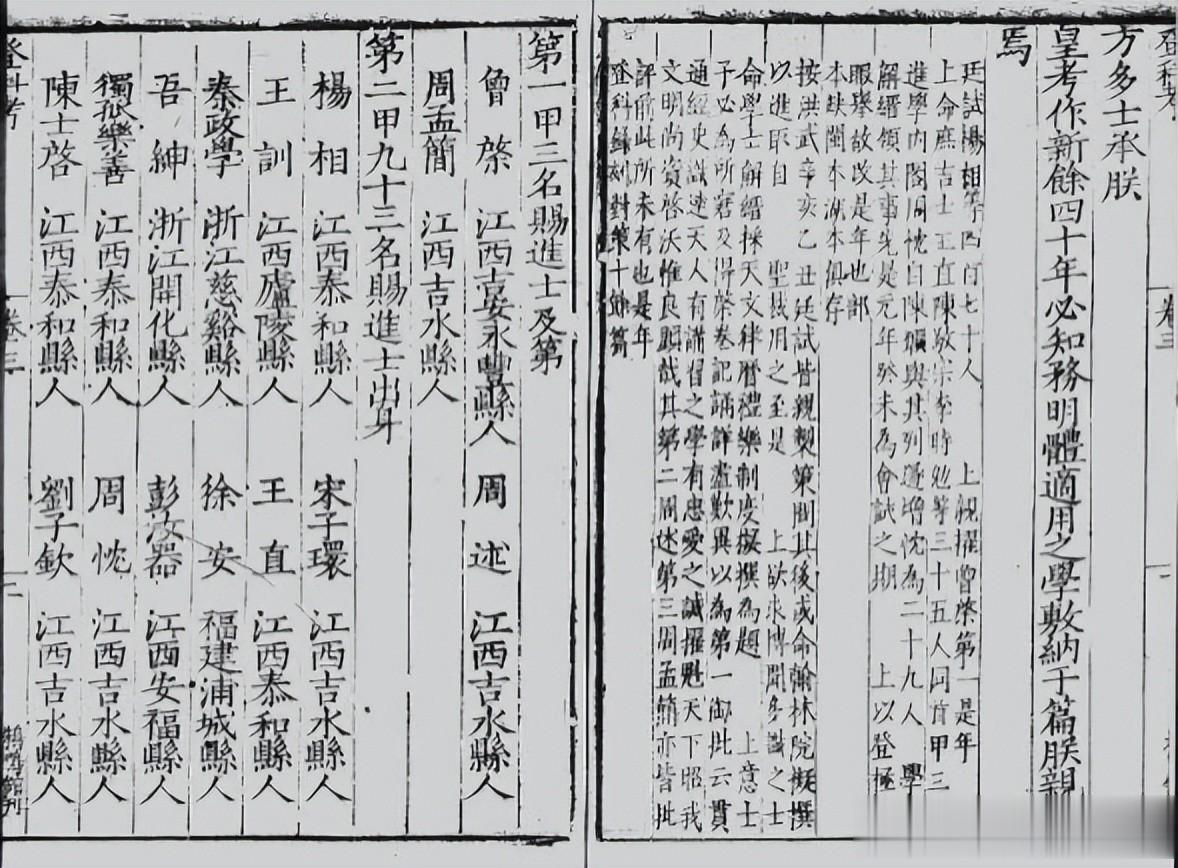 方多士承朕
皇考作新餘四十年必知務明體適用之學敷納于篇朕親
焉
廷試楊相等四百七十人　上親擢曾棨第一是年
上命庶吉士王直陳敬宗李時勉等三十五人同首甲三
進學內閣周忱自陳獷與其列遂增忱為二十九人　學
解縉領其事先是元年癸未為會試之期　上以登極
眼舉故改是年也部
本缺閩本湖本俱存
按洪武辛亥乙丑廷試皆親製策問其後或命翰林院擬撰
以進取自　聖裁用之至是　上欲求博聞多識之士
命學士解縉採天文律曆禮樂制度擬撰為題　上意士
子必為所窘及得棨卷記誦詳盡歎異以為第一御批云貫
通經史識達天人有講習之學有忠愛之誠擢魁天下昭我
文明尚資啓沃惟良顯哉其第二周述第三周孟簡亦皆批
評前此所未有也是年
登科錄刻對策十餘篇
登科考
卷三
第一甲三名賜進士及第
曾棨　江西吉安永豐縣人　周述　江西吉水縣人
周孟簡　江西吉水縣人
第二甲九十三名賜進士出身
楊相　江西泰和縣人　宋子環　江西吉水縣人
王訓　江西廬陵縣人　王直　江西泰和縣人
秦政學　浙江慈谿縣人　徐安　福建浦城縣人
吾紳　浙江開化縣人　彭汝器　江西安福縣人
獨孤樂善　江西泰和縣人　周忱　江西吉水縣人
陳士啓　江西泰和縣人　劉子欽　江西吉水縣人
登科考
卷三